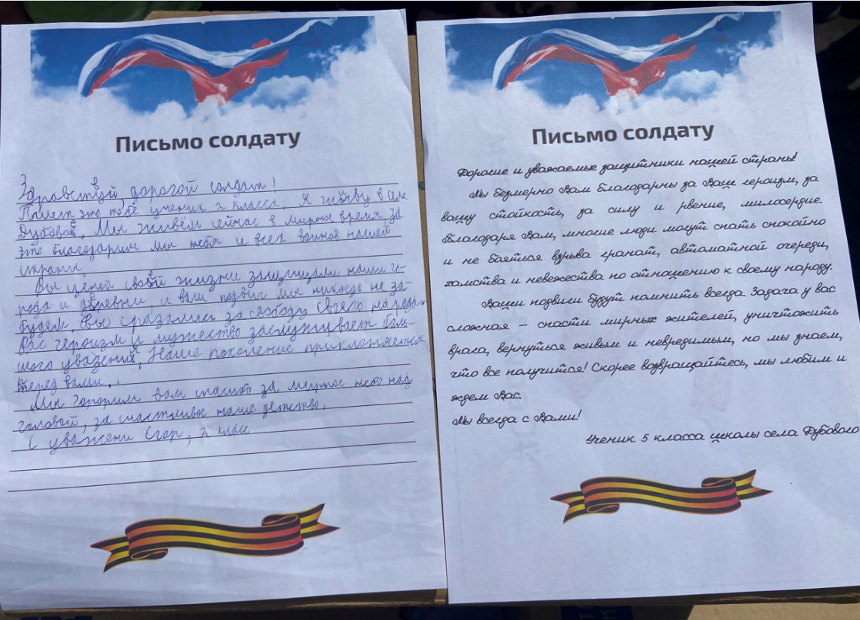 Письмо солдату
Здравствуй, дорогой солдат!
Пишет это тебе ученик 2 класса. Я живу в селе
Дубовой. Мы живём сейчас в мирное время, за
это благодарим мы тебя и всех воинов нашей
страны.
Вы ценой своей жизни защищали наши го-
рода и деревни и ваш подвиг мы никогда не за-
будем. Вы сражались за свободу своего народа.
Вас героизм и мужество заслуживает боль-
шого уважения. Наше поколение приклоняется
перед вами.
Мы говорим вам спасибо за мирное небо над
головой, за счастливое наше детство.
С уважени Егор, 2 класс
Письмо солдату
Дорогие и уважаемые защитники нашей страны!
Мы безмерно Вам благодарны за Ваш героизм, за
вашу стойкость, за силу и рвение, милосердие.
Благодаря Вам, многие люди могут спать спокойно
и не бояться взрыва гранат, автоматной очереди,
хамства и невежества по отношению к своему народу.
Ваши подвиги будут помнить всегда. Задача у вас
сложная – спасти мирных жителей, уничтожить
врага, вернуться живым и невредимым, но мы знаем,
что все получится! Скорее возвращайтесь, мы любим и
ждем Вас.
Мы всегда с Вами!
Ученик 5 класса школы села Дубового